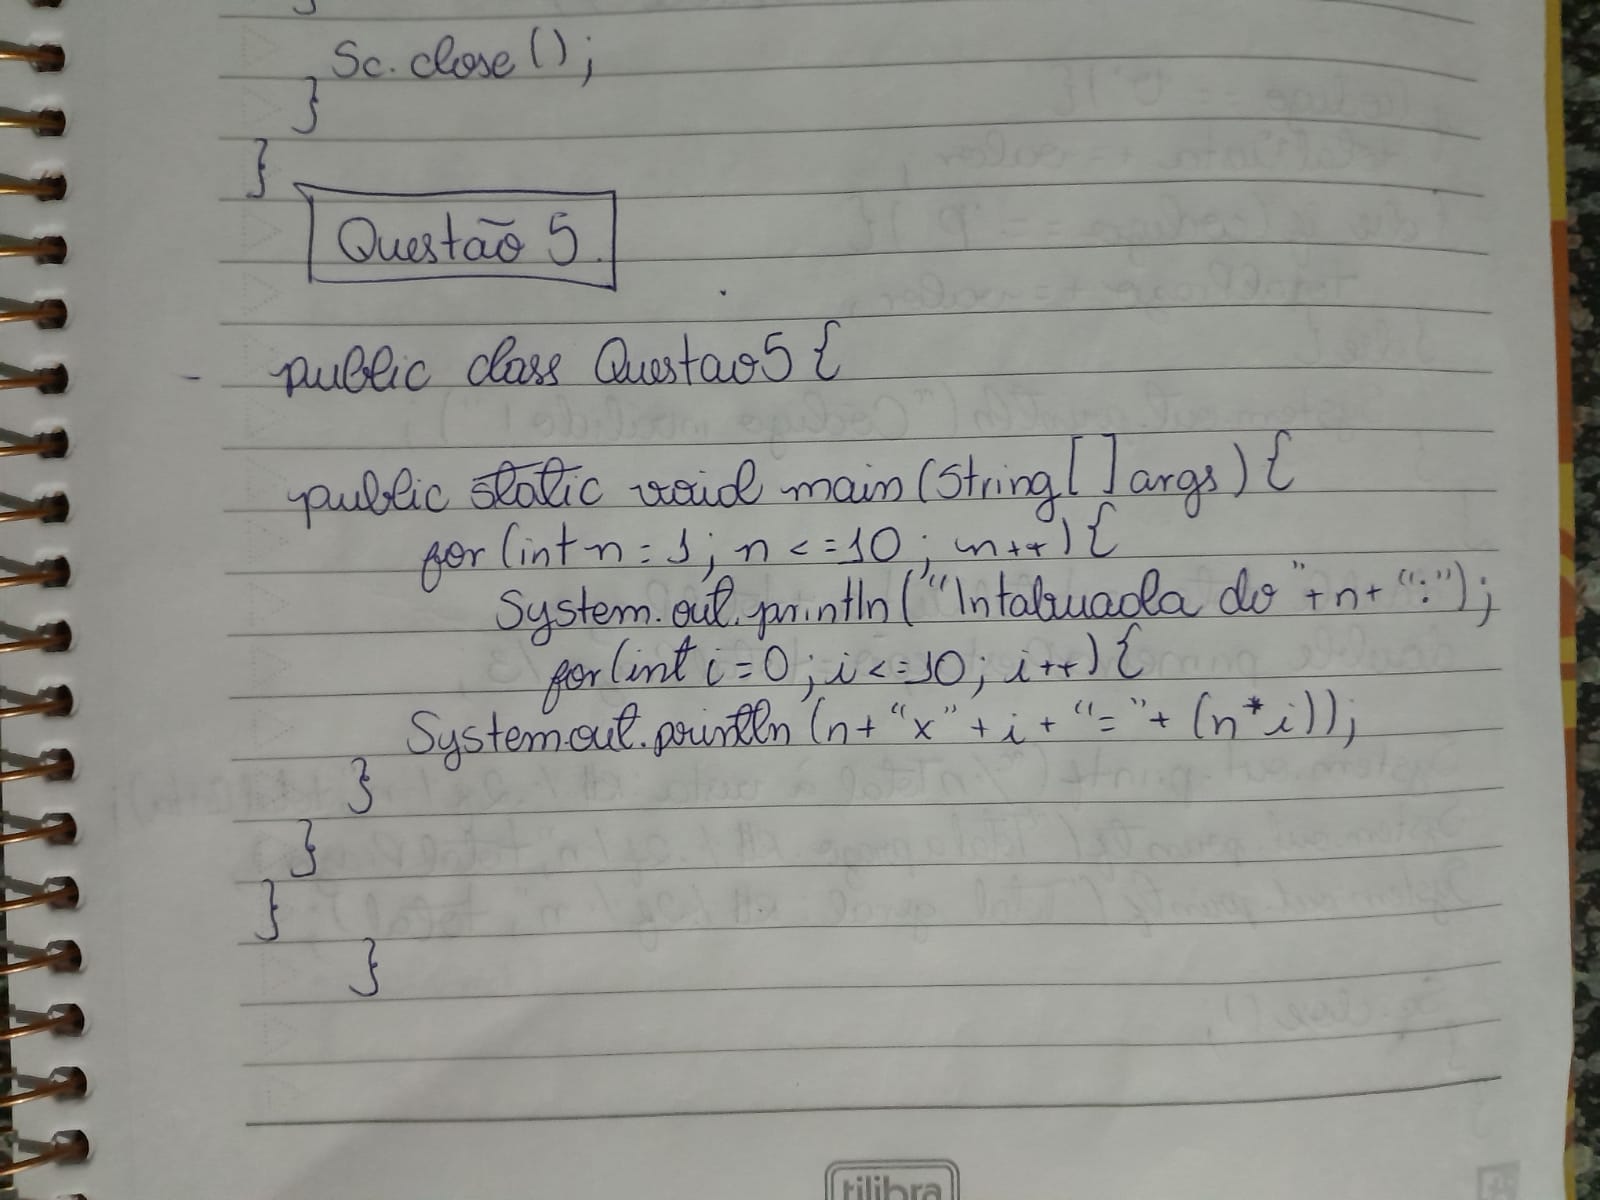 }
Sc.close();
}
}
Questão 5.
- public class Questao5 {
public static void main(String[] args) {
for (int n = 1; n <= 10; n++) {
System.out.println("\ntabuada do "+n+ ":");
for(int i = 0; i <= 10; i++) {
System.out.println (n+ "x" + i + "=" + (n*i));
}
}
}
}
tilibra